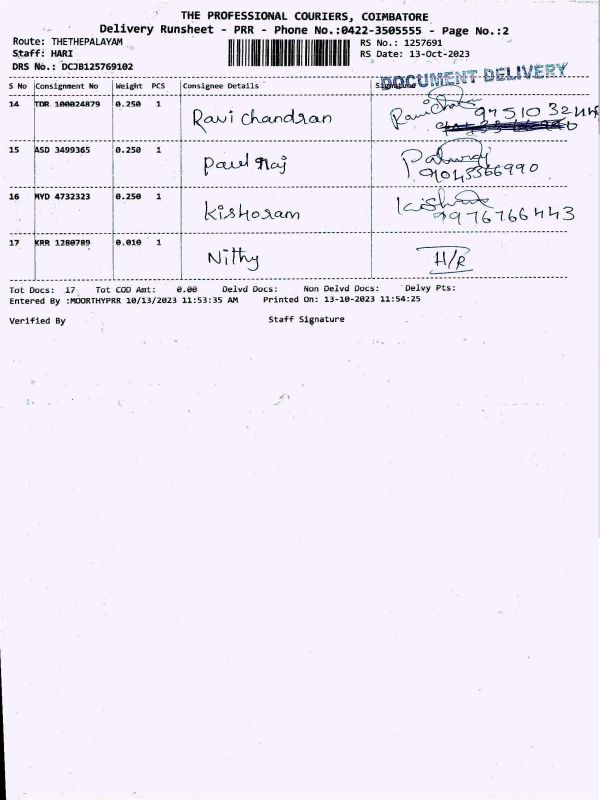 THE PROFESSIONAL COURIERS, COIMBATORE
Delivery Runsheet - PRR - Phone No.:0422-3505555 - Page No.:2
Route: THETHEPALAYAM RS No.: 1257691
Staff: HARI RS Date: 13-Oct-2023
DRS No.: DCJB125769102
DOCUMENT DELIVERY
S No Consignment No Weight PCS Consignee Details Signature
14 TDR 100024879 0.250 1 Ravi chandran
15 ASD 3499365 0.250 1 Paul Raj 9045366990
16 MYD 4732323 0.250 1 Kishoram Kishore 9976766443
17 KRR 1280789 0.010 1 Nithy H/R
Tot Docs: 17 Tot COD Amt: 0.00 Delvd Docs: Non Delvd Docs: Delvy Pts:
Entered By :MOORTHYPRR 10/13/2023 11:53:35 AM Printed On: 13-10-2023 11:54:25
Verified By Staff Signature